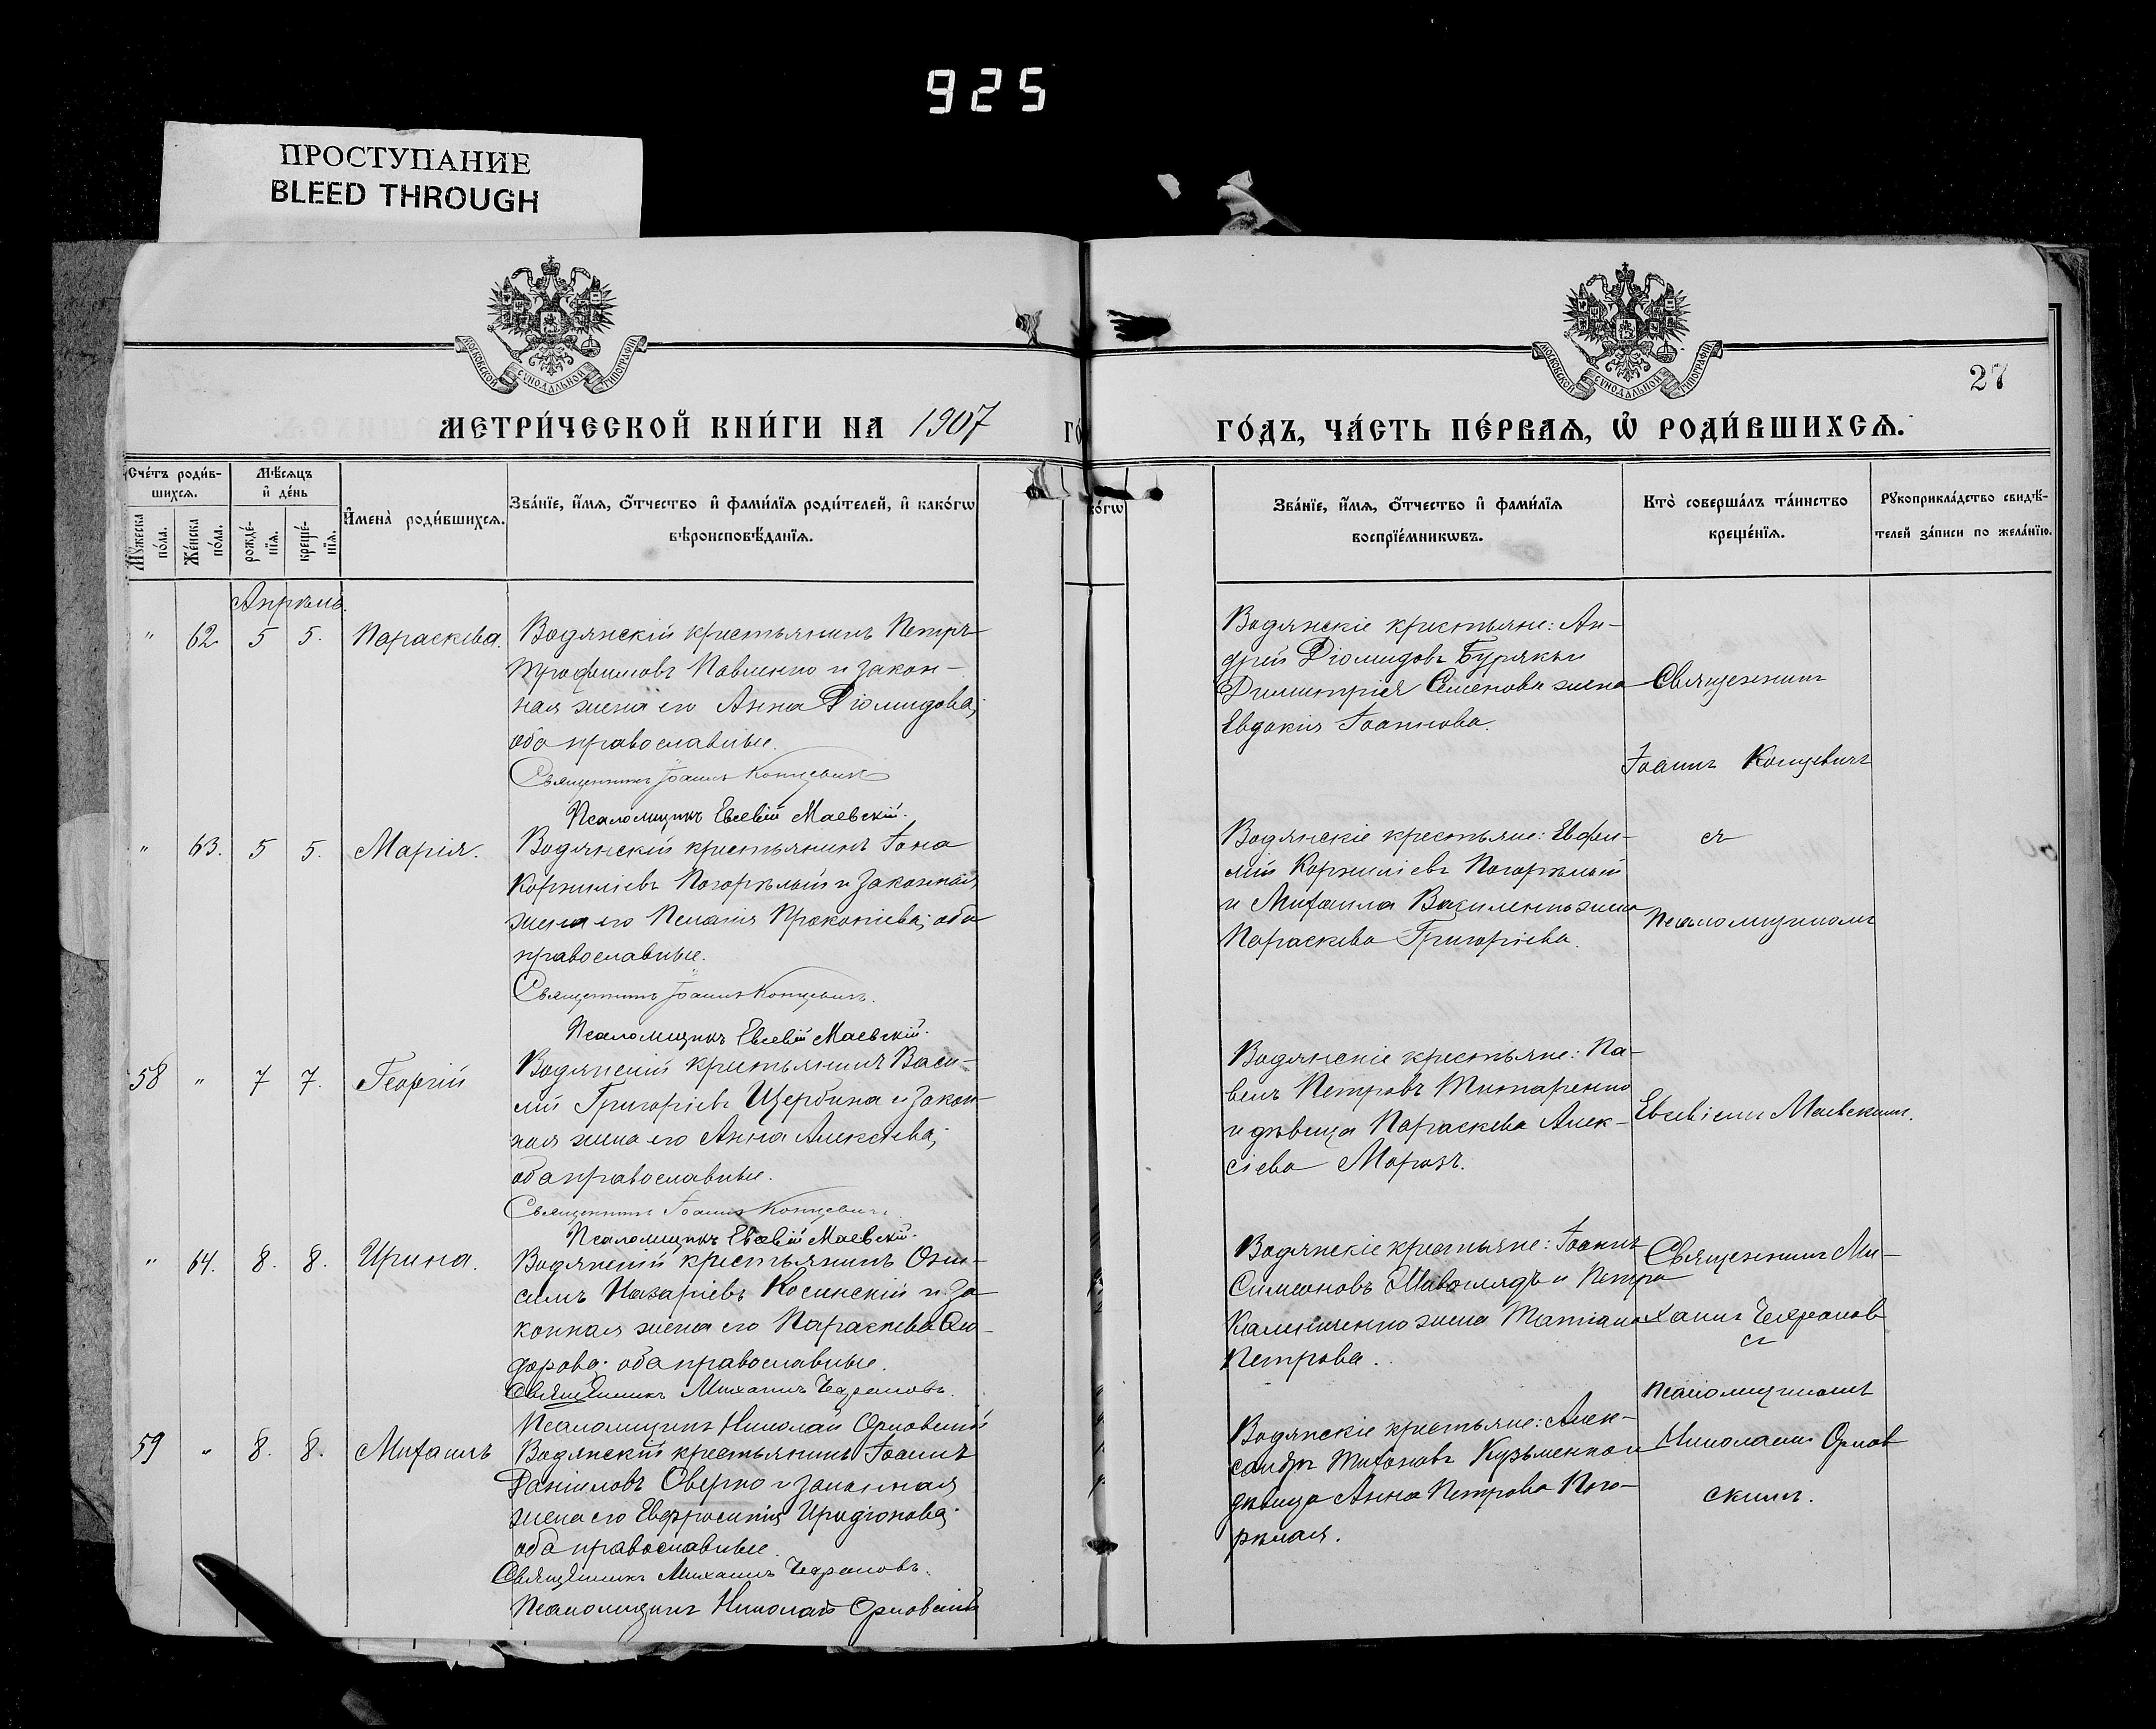 925
ПРОСТУПАНИЕ
BLEED THROUGH
МОСКОВСКОЙ СѴНОДАЛЬНОЙ ТИПОГРАФІИ
МОСКОВСКОЙ СѴНОДАЛЬНОЙ ТИПОГРАФІИ
27
МЕТРИ́ЧЕСКОЙ КНИ́ГИ НА 1907
ГО́
ГО́ДЪ, ЧА́СТЬ ПЕ́РВАѦ, Ѡ҆ РОДИ́ВШИХСѦ.
Сче́тъ роди́в-
шихсѧ.
Мѣ́сѧцъ
и҆ де́нь
Мꙋ́жеска по́ла.
Же́нска по́ла.
рожде́-нїѧ.
креще́-нїѧ.
И҆мена̀ роди́вшихсѧ.
Зва́нїе, и҆́мѧ, ѻ҆́тчество и҆ фами́лїѧ роди́телей, и҆ како́гѡ
вѣроисповѣ́данїѧ.
ко́гѡ
Зва́нїе, и҆́мѧ, ѻ҆́тчество и҆ фами́лїѧ
воспрїе́мникѡвъ.
Кто̀ соверша́лъ та́инство
креще́нїѧ.
Рꙋкоприкла́дство свидѣ́-
телей за́писи по жела́нїю.
Апрѣль.
" 62. 5 5. Параскева.
Водянскій крестьянинъ Петръ
Трофимовъ Павленко и закон-
ная жена его Анна Діомидова;
оба православные.
Священникъ Іоаннъ Концевичъ
Псаломщикъ Евсевій Маевскій.
Водянскіе крестьяне: Ан-
дрей Діомидовъ Бурякъ и
Димитрія Семенова жена
Евдокія Іоаннова.
Священник
Іоаннъ Концевичъ
" 63. 5 5. Марія.
Водянскій крестьянинъ Іона
Корниліевъ Погорѣлый и законная
жена его Пелагія Прокопіева; оба
православные.
Священникъ Іоаннъ Концевичъ.
Псаломщикъ Евсевій Маевскій.
Водянскіе крестьяне: Евфи-
мій Корниліевъ Погорѣлый
и Михаила Василенко жена
Параскева Григоріева.
съ
Псаломщикомъ
58 " 7 7. Георгій
Водянскій крестьянинъ Васи-
лій Григоріевъ Щербина и закон-
ная жена его Анна Алексѣева;
оба православные.
Священникъ Іоаннъ Концевичъ.
Псаломщикъ Евсевій Маевскій.
Водянскіе крестьяне: Па-
велъ Петровъ Титаренко
и дѣвица Параскева Алек-
сіева Морозъ.
Евсевіемъ Маевскимъ.
" 64. 8. 8. Ирина.
Водянскій крестьянинъ Они-
симъ Назаріевъ Косинскій и за-
конная жена его Параскева Сѵ-
дорова; оба православные.
Священникъ Михаилъ
Псаломщикъ Николай Орловскій
Водянскіе крестьяне: Іоаннъ
Симеоновъ и Петра
Калениченко жена Татіана
Петрова.
Священникъ Ми-
хаилъ
съ
псаломщикомъ
59 " 8. 8. Михаилъ
Водянскій крестьянинъ Іоаннъ
Даниловъ Сверко и законная
жена его Евфросинія Иродіонова;
оба православные.
Священникъ Михаилъ
Псаломщикъ Николай Орловскій
Водянскіе крестьяне: Алек-
сандръ Тихоновъ Кузьменко и
дѣвица Анна Петрова Пого-
рѣлая.
Николаемъ Орлов
скимъ.